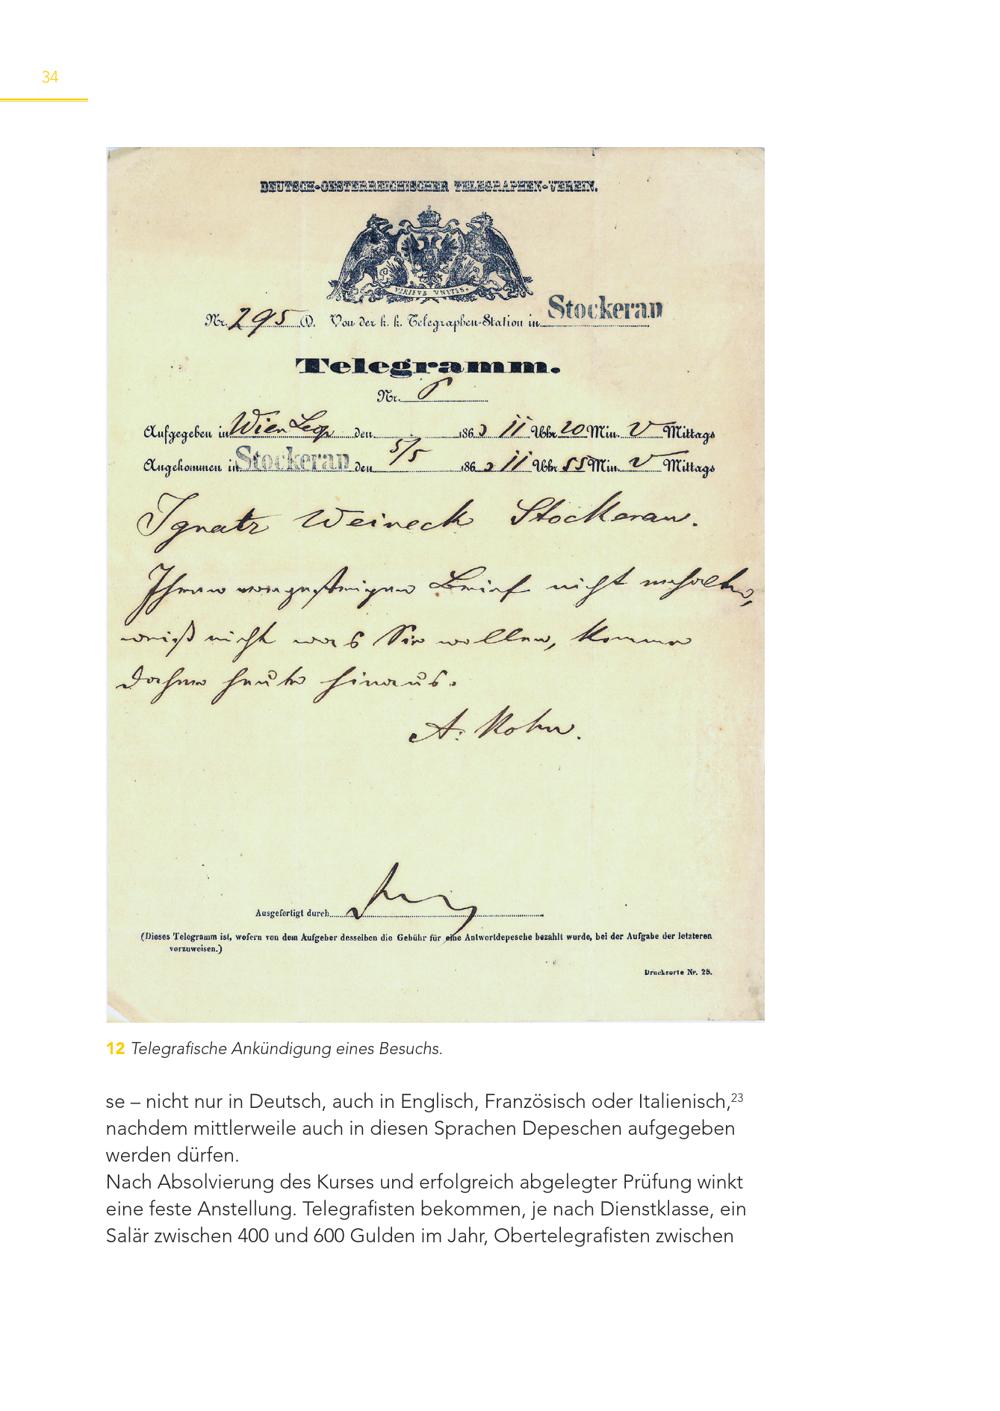 34
DEUTSCH-OESTERREICHISCHER TELEGRAPHEN-VEREIN.
VIRIBUS UNITIS.
Nr. 295 D. Von der k. k. Telegraphen-Station in Stockerau
Telegramm.
Nr.
Aufgegeben in Wien Leop den 186 11 Uhr 20 Min. V Mittags
Angekommen in Stockerau den 5/5 186 11 Uhr 55 Min. V Mittags
Ignatz Weineck Stockerau.
Ihren vorgestrigen Brief nicht erhalten,
weiß nicht was Sie wollen, komme
daher heute hinaus.
A. Kohn.
Ausgefertigt durch
(Dieses Telegramm ist, wofern von dem Aufgeber desselben die Gebühr für eine Antwortdepesche bezahlt wurde, bei der Aufgabe der letzteren
vorzuweisen.)
Drucksorte Nr. 28.
12 Telegrafische Ankündigung eines Besuchs.
se – nicht nur in Deutsch, auch in Englisch, Französisch oder Italienisch,23
nachdem mittlerweile auch in diesen Sprachen Depeschen aufgegeben
werden dürfen.
Nach Absolvierung des Kurses und erfolgreich abgelegter Prüfung winkt
eine feste Anstellung. Telegrafisten bekommen, je nach Dienstklasse, ein
Salär zwischen 400 und 600 Gulden im Jahr, Obertelegrafisten zwischen